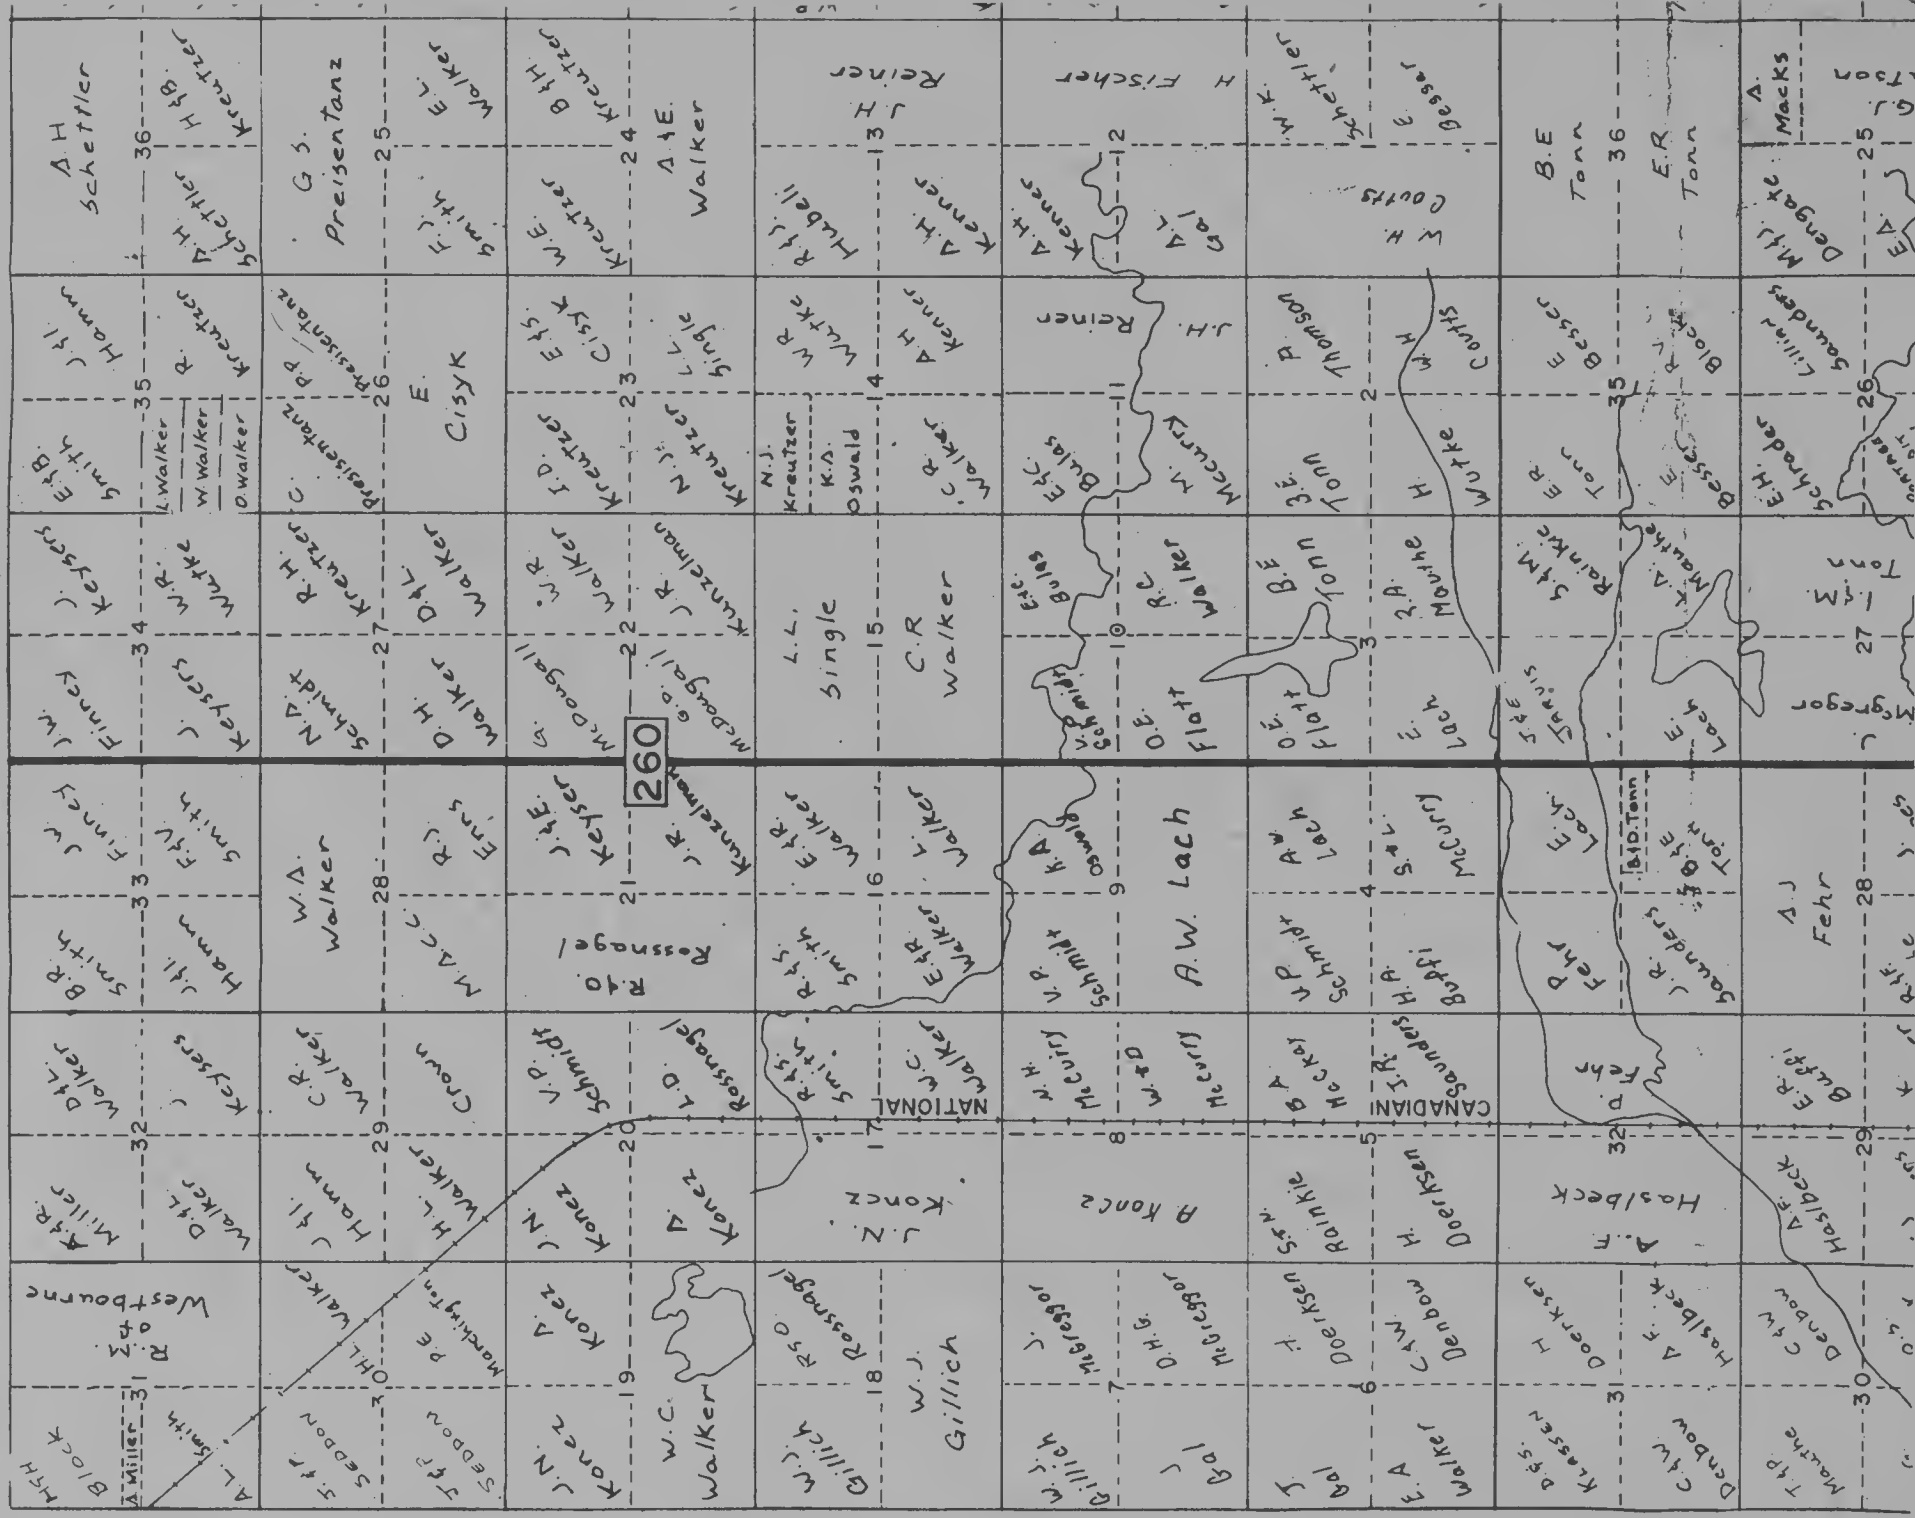 A.H
Schettler
36
H&B.
Kreutzer
A.H.
Schettler
G S.
Preisentanz
25
E.L.
Walker
F.J.
Smith
B&H.
Kreutzer
24
W.E.
Kreutzer
A&E.
Walker
J.H
Reiner
13
R&J.
Hubeli
A.H.
Kenner
H Fischer
12
A.H.
Kenner
A.L
Gal
W.K.
Schettler
E.
Bessar
1
W.H.
Coutts
B.E
Tonn
36
E.R
Tonn
A.
Macks
G.J.
25
M&J.
Dengate
E.A.
J.&I
Hamm
35
R.
Kreutzer
E&B.
Smith
L.Walker
W.Walker
O.Walker
P.P.
Presisentanz
C.
Presisentanz
26
E.
Cisyk
E&S.
Cisyk
23
L.L.
Single
I.D.
Kreutzer
N.J.
Kreutzer
W R
Wutke
14
A.H
Kenner
N.J.
Kreutzer
K.A.
Oswald
C.R.
Walker
J.H. Reiner
11
E&C.
Bulas
M.
Mccurry
A.
Thomson
2
W.H
Coutts
B.E.
Tonn
H.
Wutke
E
Besser
35
R L
Block
E.R.
Tonn
E.
Besser
Lillian
Saunders
26
E.H.
Schrader
J.
Keysers
34
W.R.
Wutke
J.W.
Finney
J.
Keysers
R.H.
Kreutzer
27
D&L.
Walker
N.A.
Schmidt
D.H.
Walker
W.R.
Walker
22
J.R.
Kunzelman
G.
McDougall
G.D.
McDougall
L.L.
Single
15
C.R
Walker
E&C.
Bulas
10
R.C.
Walker
V.P.
Schmidt
O.E.
Flatt
B.E
Tonn
3
Mauthe
O.E.
Flatt
E.
Lach
S&M
Rainkie
K.A.
Mauthe
J&E
Jarvis
E.
Lach
I.&M.
Tonn
27
J.
Mcgregor
260
J W.
Finney
33
F&V.
Smith
B.R.
Smith
J.&I.
Hamm
W.A.
Walker
28
R.J.
Enns
M.A.C.C.
J.&E.
Keyser
21
J.R.
Kunzelman
R.&O.
Rossnagel
E.&R.
Walker
16
L.
Walker
R.&S.
Smith
E.&R.
Walker
K.A
Oswald
9
V.P.
Schmidt
A.W. Lach
A.W
Lach
4
S.&L.
McCurry
V.P
Schmidt
H.A.
Buffi
E.
Lach
B.&D.Tonn
B.&E
Tonn
P
Fehr
J.R.
Saunders
A.J
Fehr
28
D&L
Walker
32
J
Keysers
A.&R.
Miller
D.&L.
Walker
C.R.
Walker
29
Crown
J.&I.
Hamm
H.L.
Walker
V.P.
Schmidt
20
L.D.
Rossnagel
J.N.
Konez
A.
Konez
R.&S.
Smith
17
W.C.
Walker
NATIONAL
J.N.
Koncz
W.H.
McCurry
8
W.&D
McCurry
A Koncz
B.A.
MacKay
5
J.R.
Saunders
CANADIAN
S.&M.
Rainkie
H.
Doerksen
P. Fehr
32
A.F.
Haslbeck
E.R.
Buffi
29
A.F.
Haslbeck
R.M.
of
Westbourne
31
H&H
Block
A Miller
A.L. Smith
H.L. Walker
30
P.E
Marchington
J.&P
SEDDON
J&P
SEDDON
A.
Konez
19
J.N.
Konez
W.C.
Walker
R&O
Rossnagel
18
W.J.
Gillich
W.J.
Gillich
J.
McGreggor
7
D.H.G.
McGreggor
W.J.
Gillich
J
Gal
H
Doerksen
6
C.&W.
Denbow
J.
Gal
E.A
Walker
H
Doerksen
31
A F.
Haslbeck
D.&S.
Klassen
C.&W.
Denbow
C.&W
Denbow
30
T.&P.
Mauthe